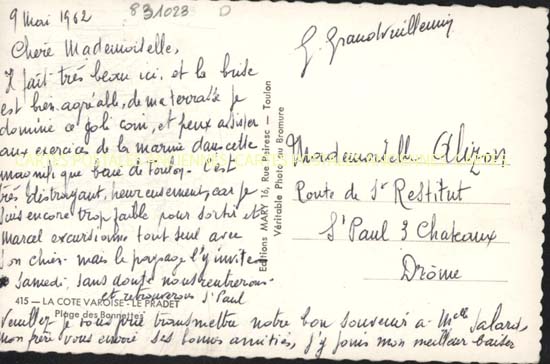 9 Mai 1962
831023
D
Chère Mademoiselle,
Il fait très beau ici, et la brise
est bien agréable, de ma terrasse je
domine ce joli coin, et peux assister
aux exercices de la marine dans cette
magnifique baie de Toulon. C'est
très distrayant, heureusement, car je
suis encore trop faible pour sortir et
Marcel excursionne tout seul avec
son chien. mais le paysage l'y invite.
Samedi, sans doute nous rentrerons
et retrouverons St Paul
415 — LA COTE VAROISE - LE PRADET
Plage des Bonnettes
Veuillez je vous prie transmettre notre bon souvenir à Melle Salard,
mon frère vous envoie ses bonnes amitiés, j'y joins mon meilleur baiser
G. Grandvuillemin
Editions MARY 16, Rue Peiresc — Toulon
Véritable Photo au Bromure
Mademoiselle Clizon
Route de St Restitut
St Paul 3 Chateaux
Drôme